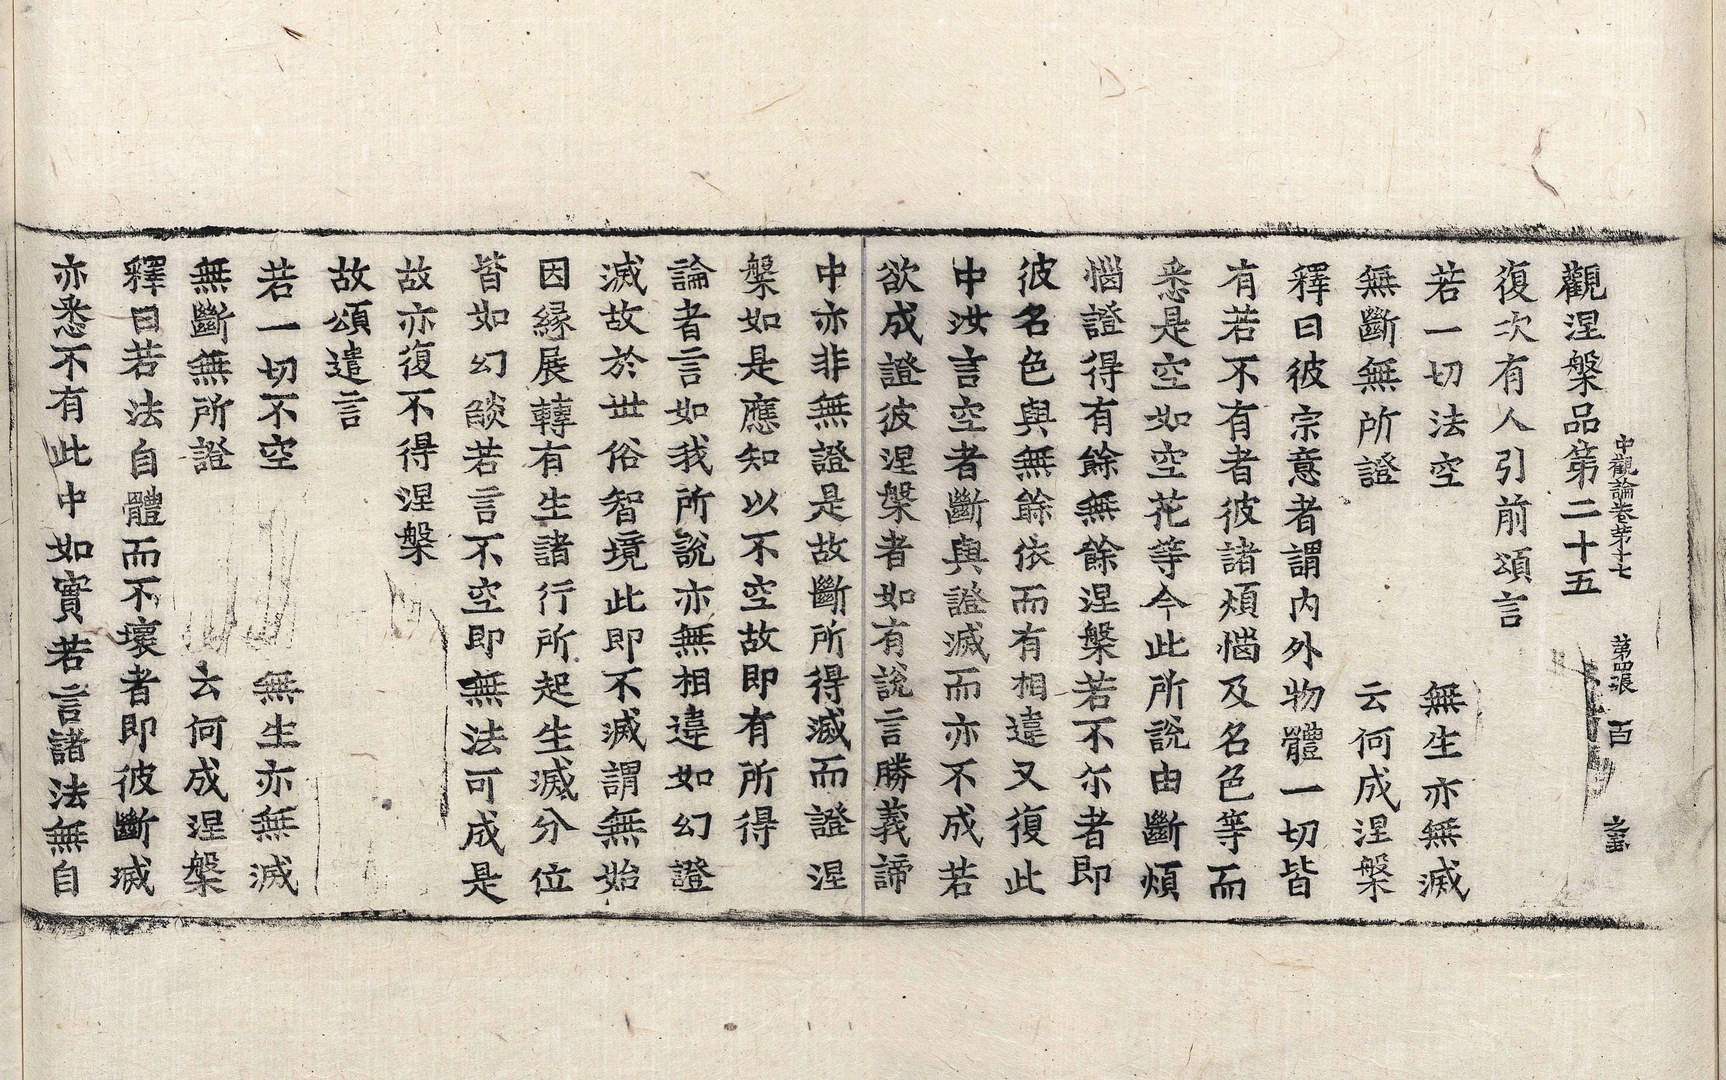 中觀論卷第十七　第四張　百
觀涅槃品第二十五
復次有人引前頌言
若一切法空　無生亦無滅
無斷無所證　云何成涅槃
釋曰彼宗意者謂内外物體一切皆
有若不有者彼諸煩惱及名色等而
悉是空如空花等今此所說由斷煩
惱證得有餘無餘涅槃若不尔者即
彼名色與無餘依而有相違又復此
中汝言空者斷與證滅而亦不成若
欲成證彼涅槃者如有說言勝義諦
中亦非無證是故斷所得滅而證涅
槃如是應知以不空故即有所得
論者言如我所說亦無相違如幻證
滅故於世俗智境此即不滅謂無始
因縁展轉有生諸行所起生滅分位
皆如幻燄若言不空即無法可成是
故亦復不得涅槃
故頌遣言
若一切不空　無生亦無滅
無斷無所證　云何成涅槃
釋曰若法自體而不壞者即彼斷滅
亦悉不有此中如實若言諸法無自